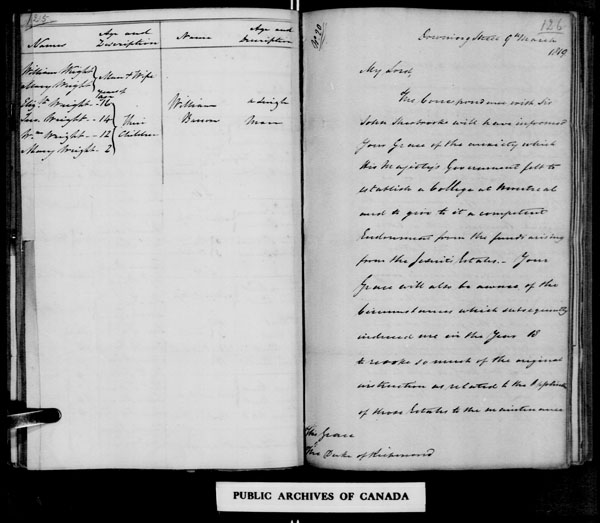 125
Names
Age and Description
Name
Age and Description
William Wright
Mary Wright
Man & Wife
years of age
Eliz.th Wright - 16
Wright - 14
Wm Wright - - 12
Mary Wright - 2
Their Children
William Baron
a single Man
No 20
126
Downing Street 9th March
1819
My Lord,
The Correspondence with Sir
John Sherbrooke will have informed
Your Grace of the anxiety which
His Majesty's Government felt to
establish a College at Montreal
and to give to it a competent
Endowment from the funds arising
from the Jesuits Estates. - Your
Grace will also be aware of the
Circumstances which subsequently
induced me in the Year 18
to revoke so much of the original
instruction as related to the
of those Estates to the maintenance
His Grace
The Duke of Richmond
PUBLIC ARCHIVES OF CANADA